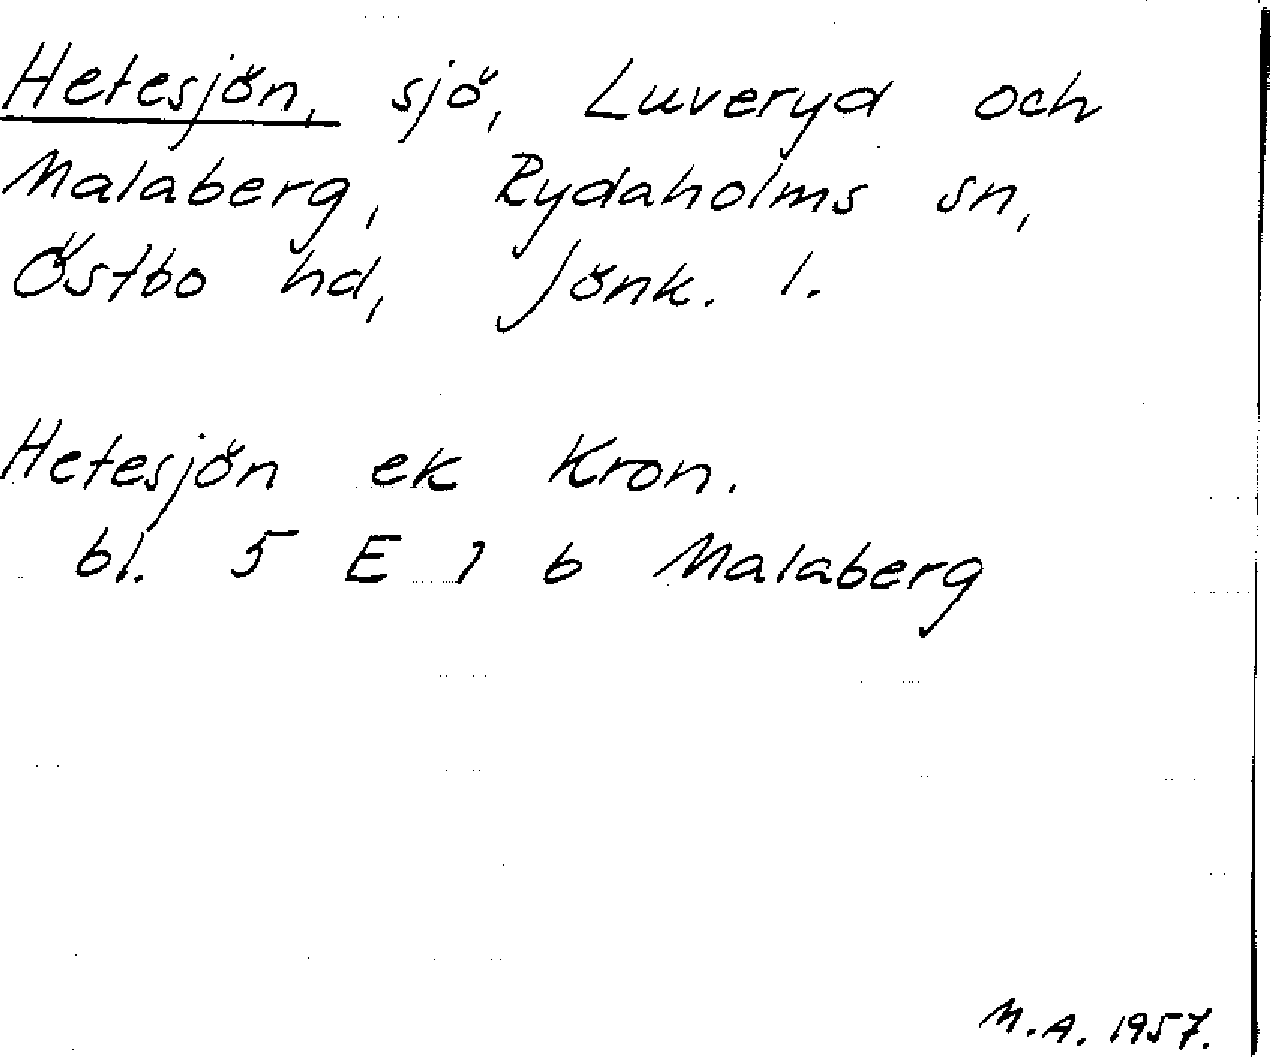 Hetesjön, sjö, Luveryd och
Malaberg, Rydaholms sn,
Östbo hd, Jönk. l.
Hetesjön ek Kron.
bl. 5 E 1 b Malaberg
M.A. 1957.